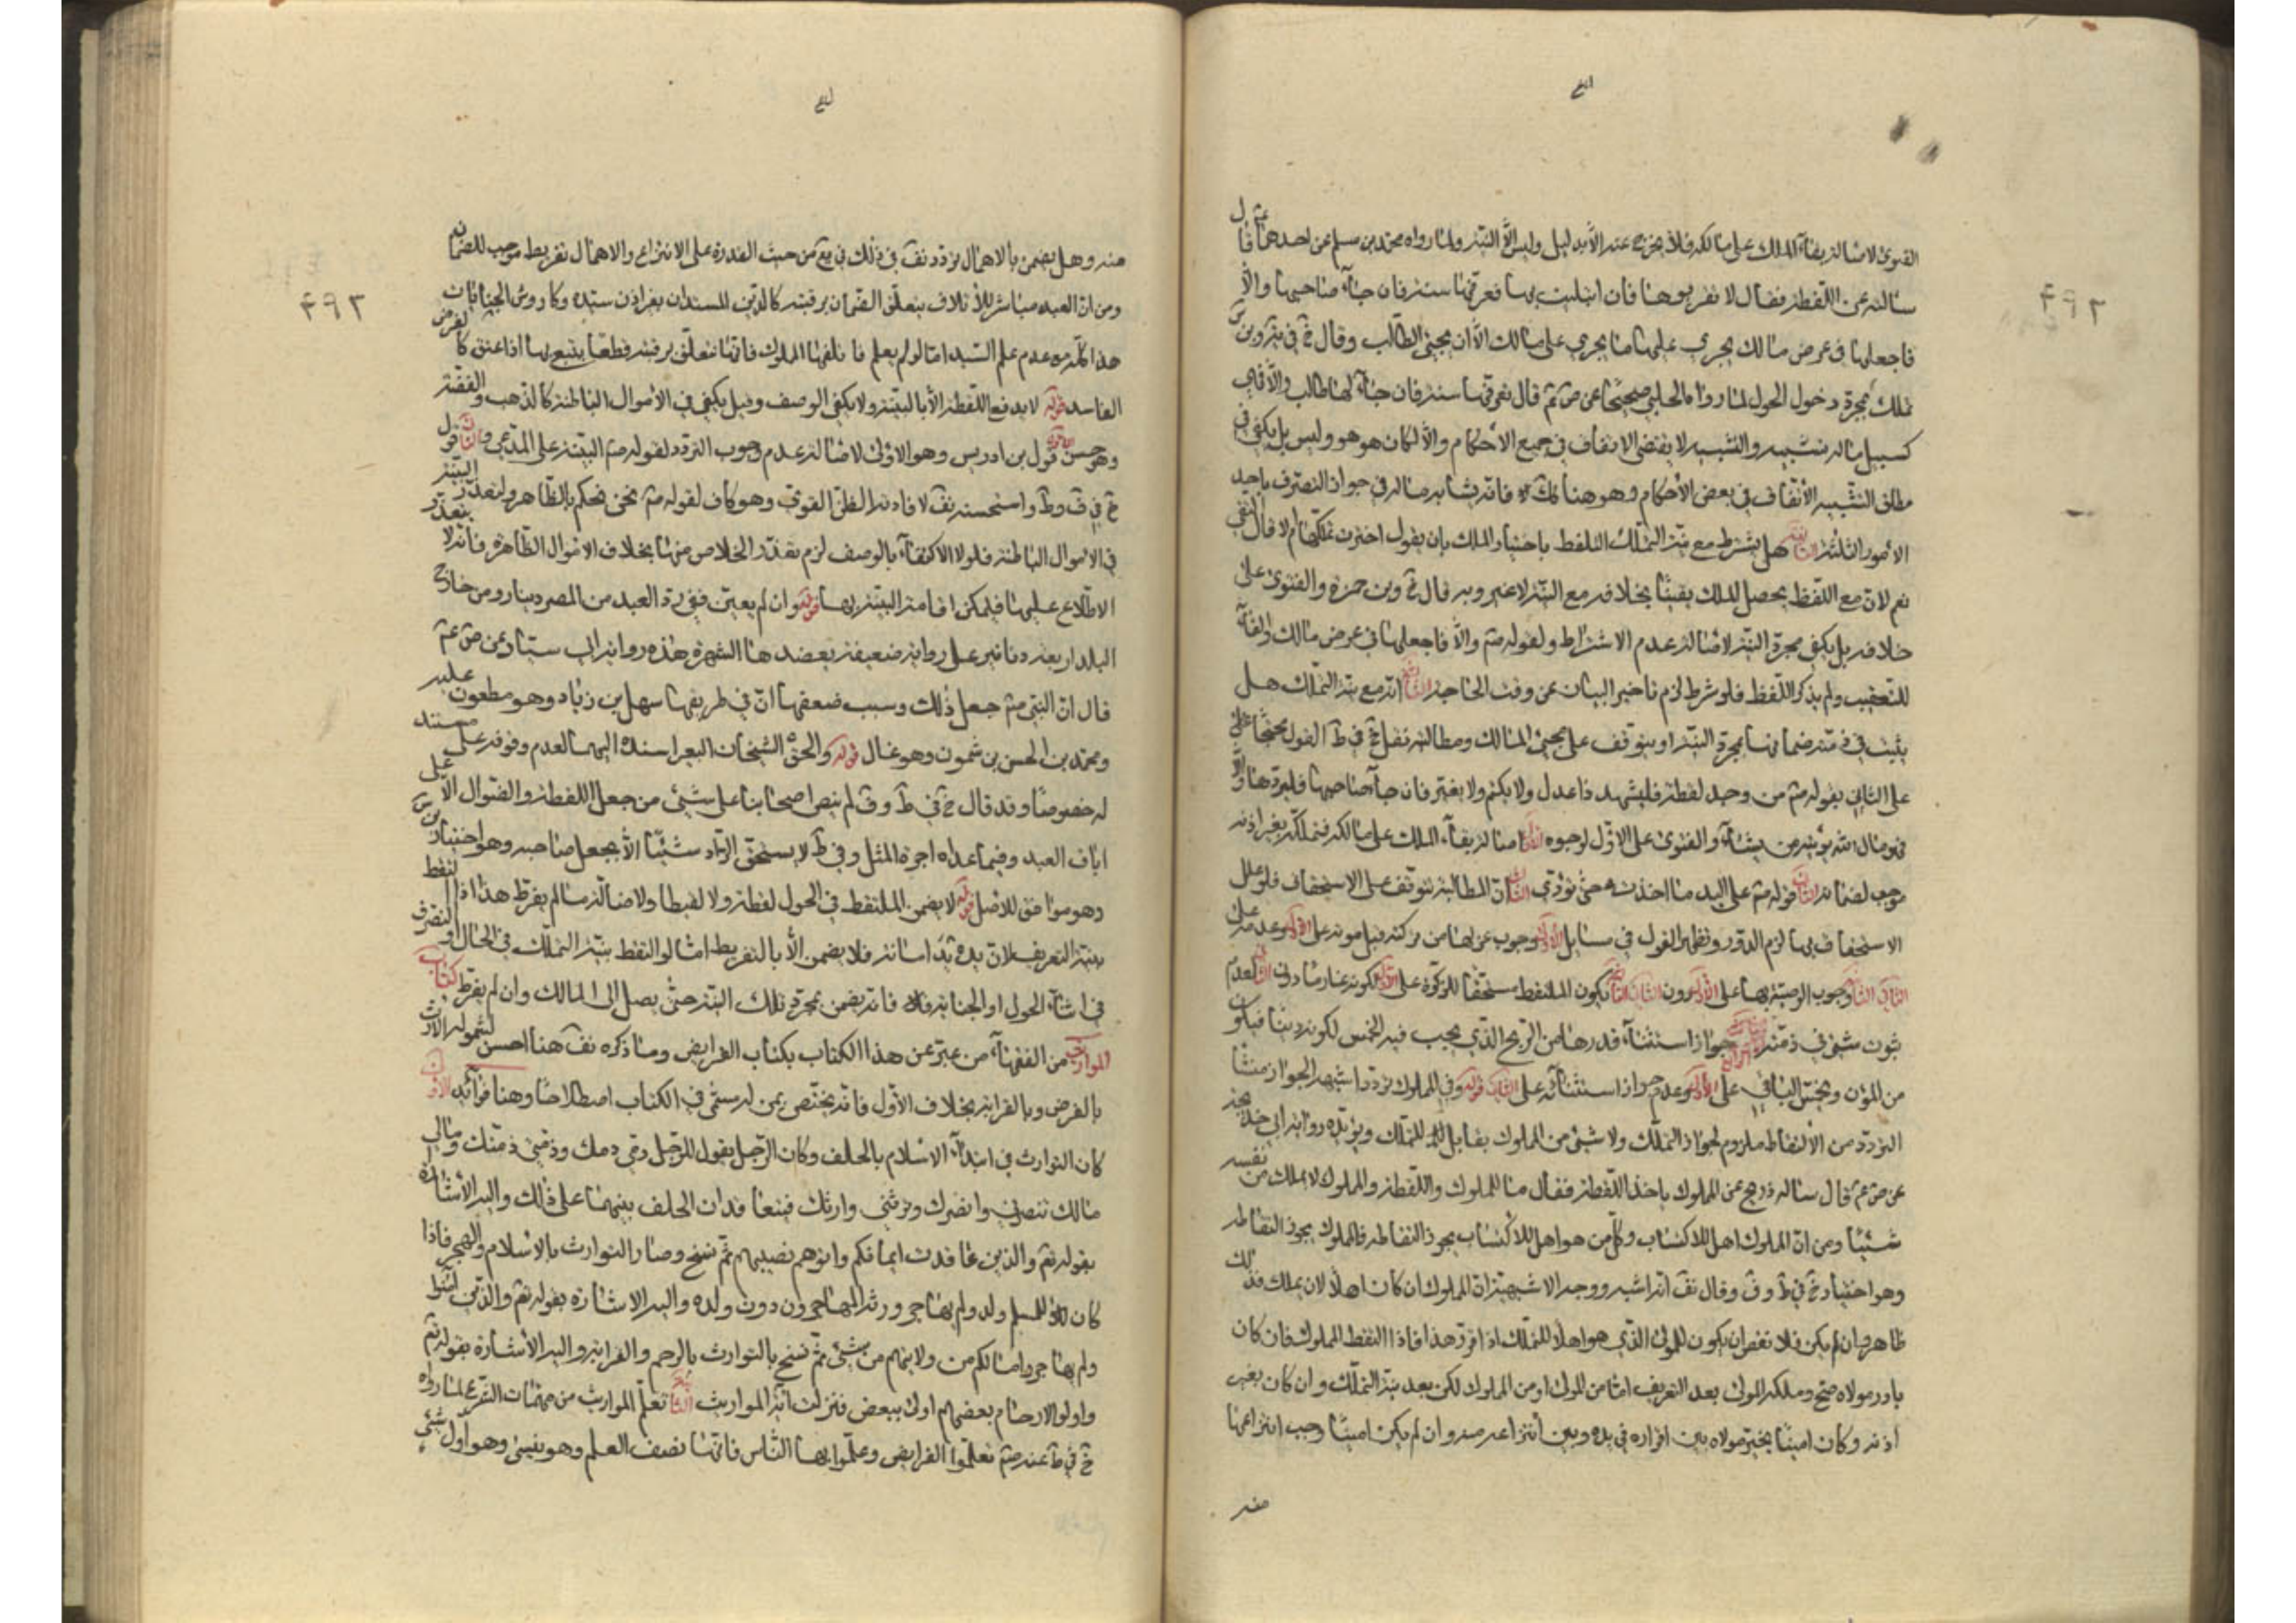 القوى لاصالة بقاء الملك على مالكه فلا يخرج عنه الا بدليل وليس الا النية ولما رواه محمد بن مسلم عن احدهما ع قال
سالته عن اللقطة فقال لا تعرضوها فان ابتليت بها فعرفها سنة فان جاء صاحبها والا
فاجعلها في عرض مالك يجري عليها ما يجري على مالك الا ان يجيء الطالب وقال في وبن س
تملك بمجرد دخول الحول لما رواه الحلبي صحيحا عن ص ع قال يعرفها سنة فان جاء لها طالب والا فهي
كسبيل ماله تشبيه والتشبيه لا يقتضي الاتفاق في جميع الاحكام والا لكان هو هو وليس بل يكفي في
مطلق التشبيه الاتفاق في بعض الاحكام وهو هنا كك فانه يشابه ماله في جواز التصرف باحد
الامور الثلثة الثانية هل يشترط مع نية التملك التلفظ باختيار الملك بان يقول اخترت تملكها ام لا قال
نعم لان مع اللفظ يحصل الملك يقينا بخلافه مع النية لا غير وبه قال وبن حمزة والفتوى على
خلافه بل يكفي مجرد النية لاصالة عدم الاشتراط ولقوله ع والا فاجعلها في عرض مالك والفاء
للتعقيب ولم يذكر اللفظ فلو شرط لزم تاخير البيان عن وقت الحاجة الثالثة انه مع نية التملك هل
يثبت في ذمته ضمانها بمجرد النية او يتوقف على مجيء المالك ومطالبته نقل في ط القول محتجا على
على الثاني بقوله ص من وجد لقطة فليشهد ذا عدل ولا يكتم ولا يغيب فان جاء صاحبها فليردها والا
فهو مال الله يؤتيه من يشاء والفتوى على الاول لوجوه اصالة بقاء الملك على مالكه فتملكه بغير اذنه
موجب لضمانه الثاني قوله ص على اليد ما اخذت حتى تؤدي الثالث ان المطالبة تتوقف على الاستحقاق فلو علل
الاستحقاق بها لزم الدور وتظهر القول في مسايل الاولى وجوب عزلها من تركته قبل موته على الاول وعدمه على
الثاني الثانية وجوب الوصية بها على الاول دون الثاني الثالثة يكون الملتقط مستحقا للزكوة على الاول لكونه غارما دون الثاني لعدم
ثبوت شيء في ذمته الرابعة جواز استثناء قدرها من الربح الذي يجب فيه الخمس لكونه دينا فيكون
من المؤن ويخمس الباقي على الاول وعدم جواز استثنائه على الثاني قوله وفي المملوك تردد اشبهه الجواز منشا
التردد من الالتقاط ملزوم لجواز التملك ولا شيء من المملوك بقابل للتملك ويؤيده رواية ابي خديجة
عن ص ع قال ساله ذريح عن المملوك ياخذ اللقطة فقال ما للمملوك واللقطة والمملوك لا يملك من نفسه
شيئا ومن ان المملوك اهل للاكتساب وكل من هو اهل للاكتساب يجوز التقاطه فالمملوك يجوز التقاطه
وهو اختيار في ط وف وقال انه اشبه ووجه الاشبهية ان المملوك ان كان اهلا لان يملك فذلك
ظاهر وان لم يكن فلا نقص ان يكون للمولى الذي هو اهل للتملك اذا اقر هذا فاذا التقط المملوك فان كان
باذن مولاه صح وملكه المولى بعد التعريف اما من المولى او من المملوك لكن بعد نية التملك وان كان بغير
اذنه وكان امينا يخير مولاه بين اقراره في يده وبين انتزاعه منه وان لم يكن امينا وجب انتزاعها
منه
۴۹۲
منه وهل يضمن بالاهمال تردد في ذلك في من حيث القدرة على الانتزاع والاهمال تفريط موجب للضمان
ومن ان العبد مباشر للاتلاف يتعلق الضمان برقبته كالدين المستدان بغير اذن سيده وكاروش الجنايات
هذا كله مع عدم علم السيد اما لو لم يعلم فاتلفها المملوك فانها تتعلق برقبته قطعا يتبع بها اذا عتق كالقرض
الفاسد قوله لا يدفع اللقطة الا بالبينة ولا يكفي الوصف وقيل يكفي في الاموال الباطنة كالذهب والفضة
وهو حسن قول بن ادريس وهو الاولى لاصالة عدم وجوب الرد لقوله ص البينة على المدعي والثاني قول
في ف وط واستحسنه لافادته الظن القوي وهو كاف لقوله ص نحن نحكم بالظاهر ولتعذر البينة
في الاموال الباطنة فلولا الاكتفاء بالوصف لزم تعذر الخلاص منها بخلاف الاموال الظاهرة فانه لا يتعذر
الاطلاع عليها فيمكن اقامة البينة بها قوله وان لم يعين ففي رد العبد من المصر دينار ومن خارج
البلد اربعة دنانير على رواية ضعيفة يعضدها الشهرة هذه رواية ابي سيار عن ص ع
قال ان النبي ص جعل ذلك وسبب ضعفها ان في طريقها سهل بن زياد وهو مطعون عليه
ومحمد بن الحسن بن شمون وهو غال قوله والحق الشيخان البعير اسنده اليهما لعدم وقوفه على مستند
له خصوصا وقد قال في ط وف لم ينص اصحابنا على شيء من جعل اللقطة والضوال الا على
اباق العبد وفيما عداه اجرة المثل وفي ط لا يستحق الراد شيئا الا بجعل صاحبه وهو اختيار بن س
وهو موافق للاصل قوله لا يضمن الملتقط في الحول لقطة ولا لقيطا ولا ضالة ما لم يفرط هذا اذا التقط
بنية التعريف لان يده يد امانة فلا يضمن الا بالتفريط اما لو التقط بنية التملك في الحال او التصرف
في اثناء الحول او الجناية فانه يضمن بمجرد تلك النية حتى يصل الى المالك وان لم يفرط كتاب
المواريث من الفقهاء من عبر عن هذا الكتاب بكتاب الفرايض وما ذكره هنا احسن لشموله الارث
بالفرض وبالقرابة بخلاف الاول فانه يختص بمن له مسمى في الكتاب اصطلاحا وهنا فوائد الاولى
كان التوارث في ابتداء الاسلام بالحلف وكان الرجل يقول للرجل دمي دمك وذمتي ذمتك ومالي
مالك تنصرني وانصرك وترثني وارثك فيتعاقدان الحلف بينهما على ذلك واليه الاشارة
بقوله تع والذين عاقدت ايمانكم فاتوهم نصيبهم ثم نسخ وصار التوارث بالاسلام والهجرة فاذا
كان للمسلم ولد ولم يهاجر ورثه المهاجرون دون ولده واليه الاشارة بقوله تع والذين امنوا
ولم يهاجروا مالكم من ولايتهم من شيء ثم نسخ بالتوارث بالرحم والقرابة واليه الاشارة بقوله تع
واولو الارحام بعضهم اولى ببعض فنزلت اية المواريث الثانية تعلم المواريث من مهمات الشرع لما رواه
في ط عنه ص تعلموا الفرايض وعلموا بها الناس فانها نصف العلم وهو ينسى وهو اول شيء
۴۹۳